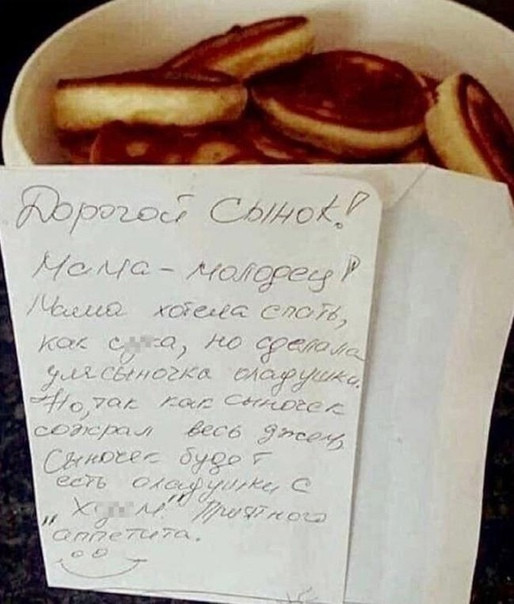 Дорогой Сынок!
Мама - молодец!
Мама хотела спать,
как с а, но сделала
для сыночка оладушки.
Но, так как сыночек
сожрал весь джем,
Сыночек будет
есть оладушки с
"Х м" Приятного
аппетита.